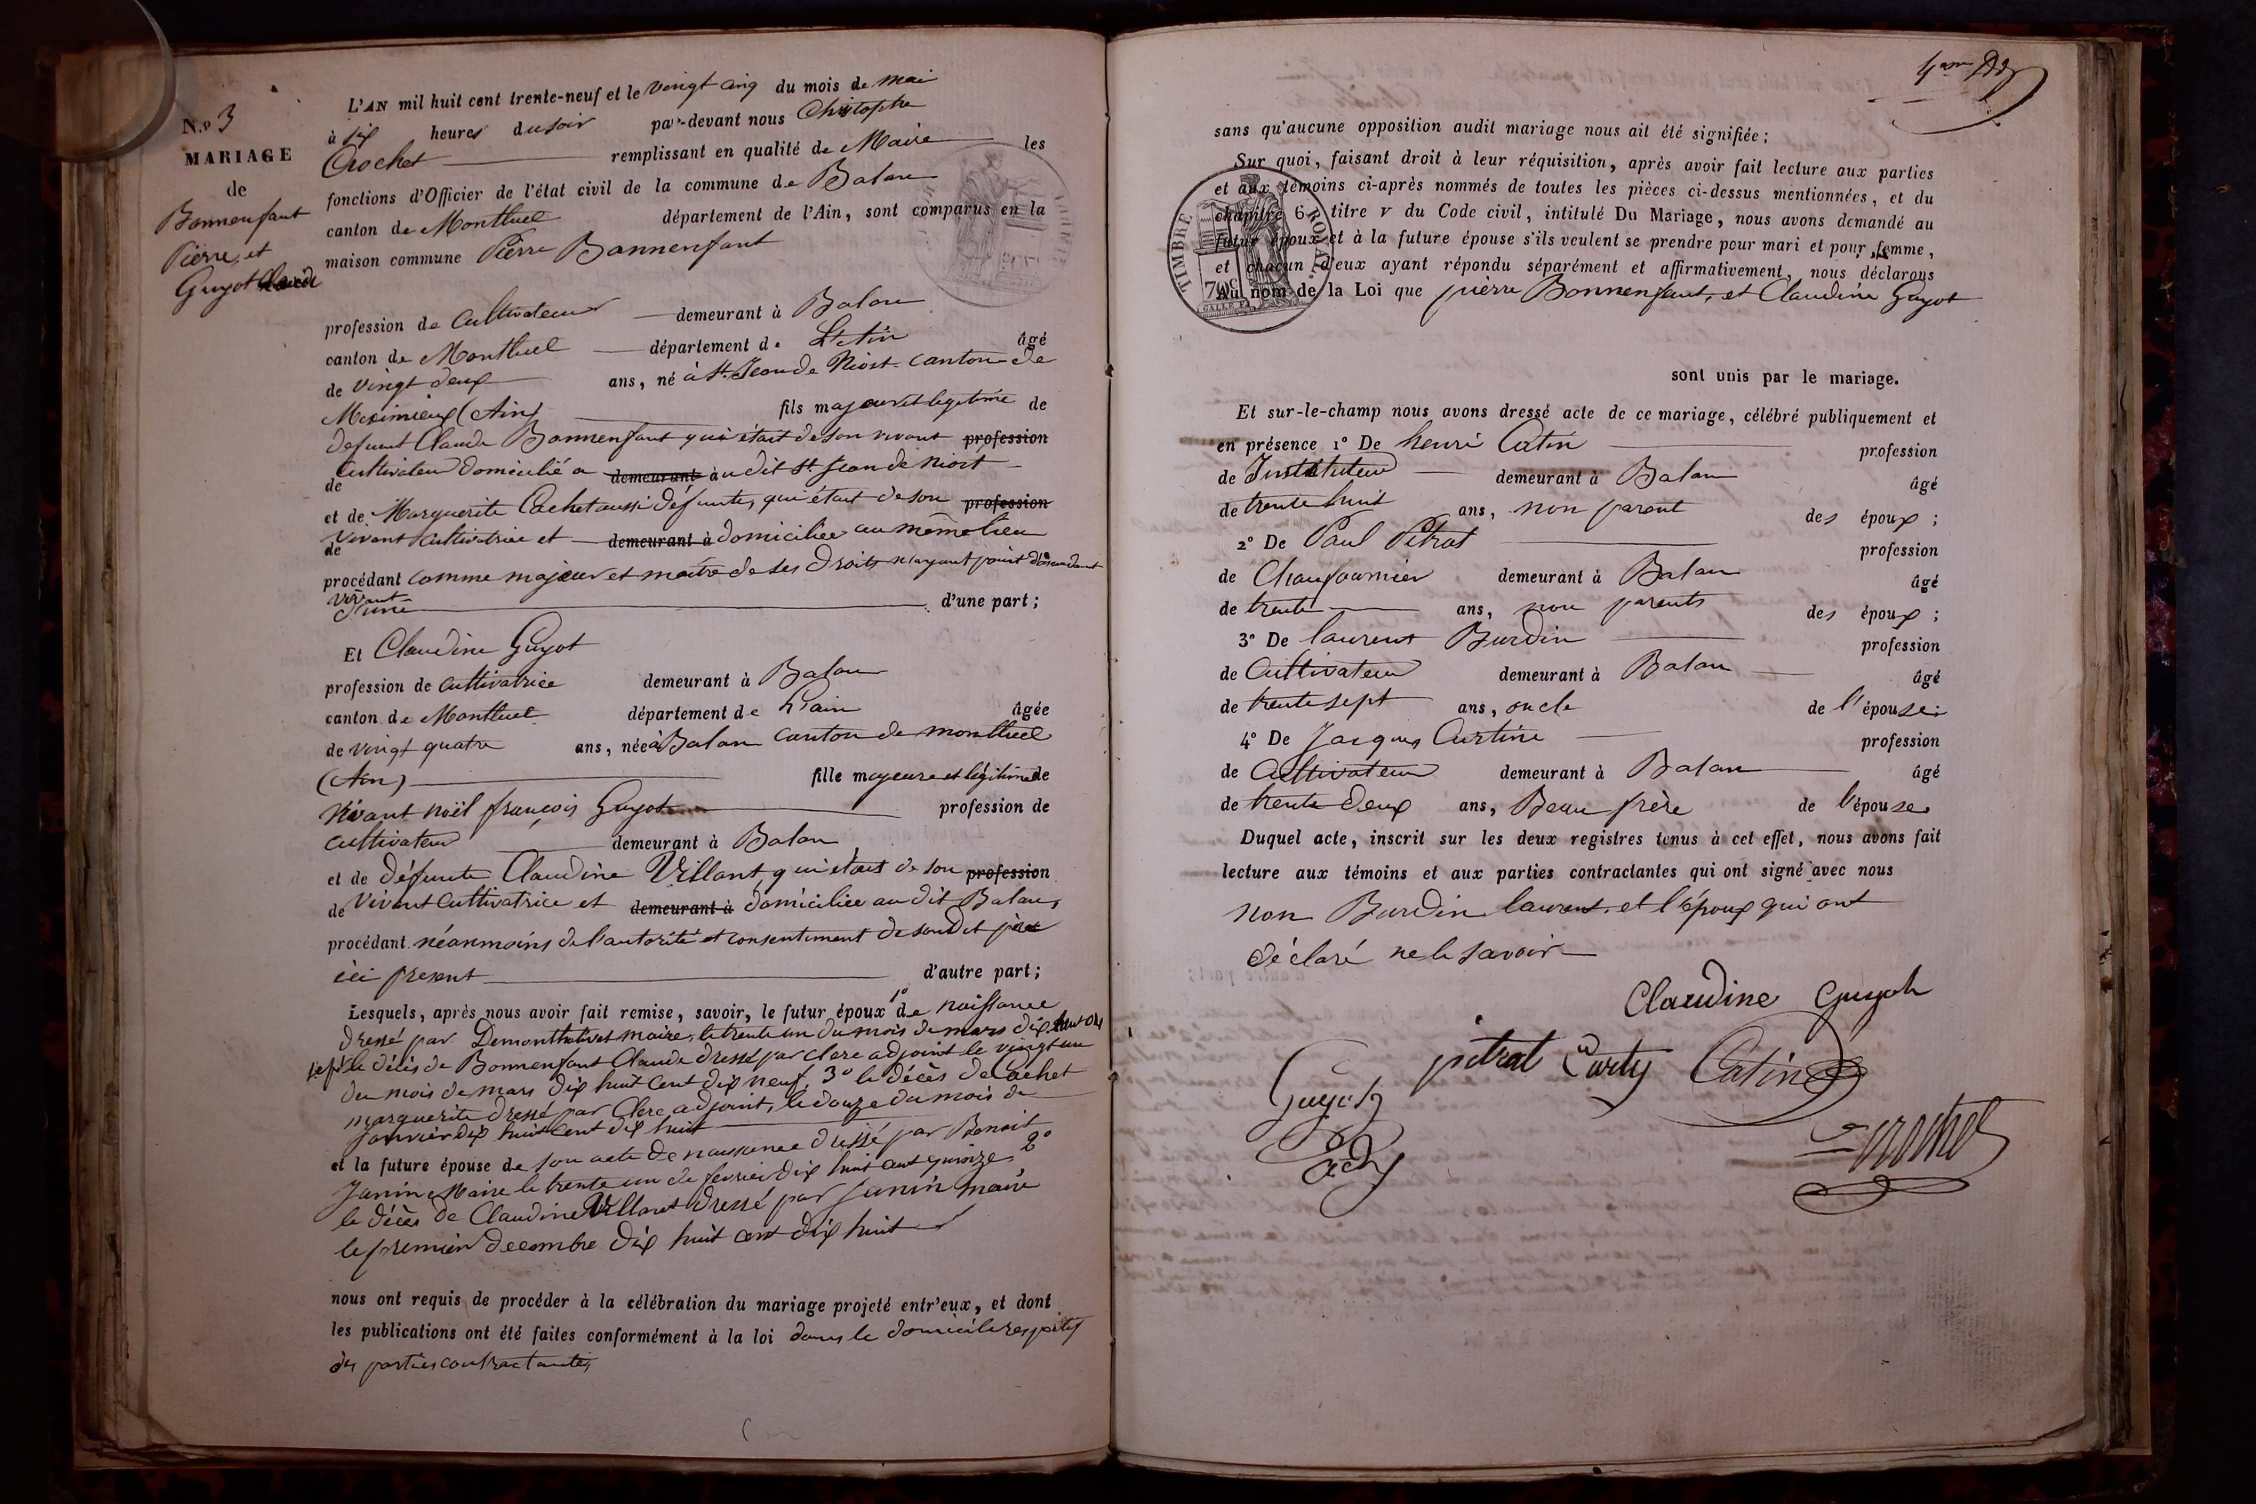 N.º 3
MARIAGE
de
Bonnenfant
Pierre, et
Guyot Claudi
L'AN mil huit cent trente-neuf et le vingt cinq du mois de mai
à six heures du soir par-devant nous Christophe
Crochet remplissant en qualité de Maire les
fonctions d'Officier de l'état civil de la commune de Balan
canton de Montluel département de l'Ain, sont comparus en la
maison commune Pierre Bonnenfant
profession de Cultivateur demeurant à Balan
canton de Montluel département de L'Ain âgé
de vingt deux ans, né à St. Jean de Niost canton de
Meximieux (Ain) fils majeur et legitime de
defunt Claude Bonnenfant qui était de son vivant profession
de Cultivateur domicilié a demeurant à udit St Jean de Niost
et de Marguerite Cachet aussi défunte, qui était de son profession
de vivant cultivatrice et demeurant à domiciliée au même lieu
procédant comme majeur et maitre de ses droits n'ayant point d'ascendant
vivant
d'une d'une part ;
Et Claudine Guyot
profession de cultivatrice demeurant à Balan
canton de Montluel département de L'ain âgée
de vingt quatre ans, née à Balan canton de montluel
(Ain) fille majeure et légitime de
vivant noël françois Guyot profession de
cultivateur demeurant à Balan
et de défunte Claudine Villant, qui était de son profession
de vivant cultivatrice et demeurant à domiciliée au dit Balan,
procédant néanmoins de l'autorité et consentiment de son dit père
ici present d'autre part ;
Lesquels, après nous avoir fait remise, savoir, le futur époux 1º de naissance
dressé par maire, le trente un du mois de mars dix
le décès de Bonnenfant Claude dressé par Clerc adjoint le vingt un
du mois de mars dix huit cent dix neuf, 3º le décès de Cachet
marguerite dressé par Clerc, adjoint, le douze du mois de
janvier dix huit cent dix huit
et la future épouse de son acte de naissance dressé par Benoit
Janin Maire le trente un de fevrier dix huit cent quinze 2º
le décès de Claudine Villant dressé par Janin maire
le premier decembre dix huit cent dix huit
nous ont requis de procéder à la célébration du mariage projeté entr'eux, et dont
les publications ont été faites conformément à la loi dans le domicile respectif
des parties contractantes,
sans qu'aucune opposition audit mariage nous ait été signifiée ;
Sur quoi, faisant droit à leur réquisition, après avoir fait lecture aux parties
et aux témoins ci-après nommés de toutes les pièces ci-dessus mentionnées, et du
chapitre 6, titre v du Code civil, intitulé Du Mariage, nous avons demandé au
futur époux et à la future épouse s'ils veulent se prendre pour mari et pour femme,
et chacun d'eux ayant répondu séparément et affirmativement, nous déclarons
Au nom de la Loi que pierre Bonnenfant, et Claudine Guyot
TIMBRE ROYAL
sont unis par le mariage.
Et sur-le-champ nous avons dressé acte de ce mariage, célébré publiquement et
en présence 1º De henri Catin profession
de Instituteur demeurant à Balan âgé
de trente huit ans, non parent des époux ;
2º De Paul Pitrat profession
de Chaufournier demeurant à Balan âgé
de trente ans, non parents des époux ;
3º De laurent Burdin profession
de Cultivateur demeurant à Balan âgé
de trente sept ans, oncle de l'épouse ;
4º De Jacques Curtine profession
de Cultivateur demeurant à Balan âgé
de trente deux ans, Beau frère de l'épouse
Duquel acte, inscrit sur les deux registres tenus à cet effet, nous avons fait
lecture aux témoins et aux parties contractantes qui ont signé avec nous
non Burdin laurent, et l'époux qui ont
déclaré ne le savoir
Claudine Guyot
pitrat Catin
Guyot
Crochet